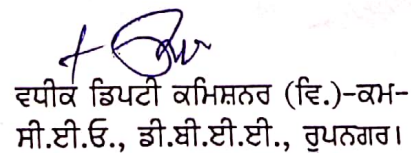 ਵਧੀਕ ਡਿਪਟੀ ਕਮਿਸ਼ਨਰ (ਵਿ.)-ਕਮ-
ਸੀ.ਈ.ਓ., ਡੀ.ਬੀ.ਈ.ਈ., ਰੂਪਨਗਰ।